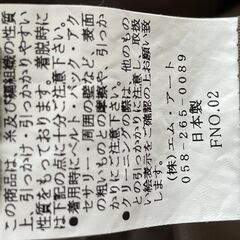 この商品は、糸及び編組織の性質
上、引っかけ・引きつりやすい
性質をもっております。着脱時に
は下記の点に十分ご注意下さい。
・着用時にベルト、バック、アク
セサリー・周囲の壁など、表面
の粗いものとの摩擦や、引っか
かりにご注意下さい。
は、他のもの
との引っかかりに注意し、取扱
い絵表示をご確認の上お願い致
します。
(株)エム・アート
058-265-0989
日本製
FNO.02